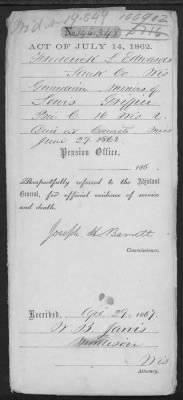 No. 146,343
ACT OF JULY 14, 1862.
Frederick L. Edwards
Sauk Co Wis
Guardian Minors of
Louis
Pri C 16 Wis V
Died at County Miss
June 27 1864
Pension Office,
186 .
Respectfully referred to the Adjutant
General, for official evidence of service
and death.
Joseph H Barrett
Commissioner.
Received, Apr 29, 1867.
W. B. Jarvis
Madison
Wis
Attorney.